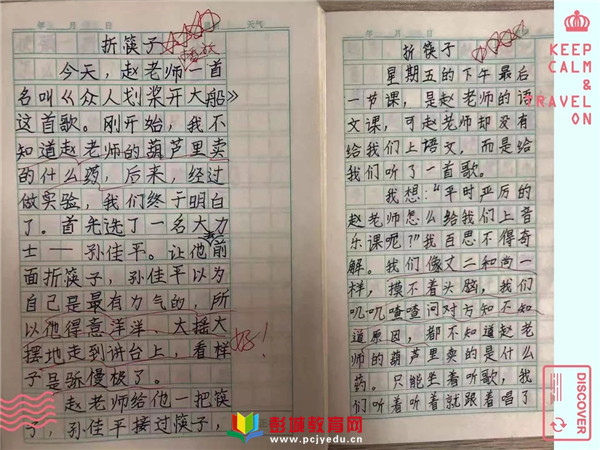 年 月 日 天气
折筷子
今天，赵老师一首
名叫《众人划桨开大船》
这首歌。刚开始，我不
知道赵老师的葫芦里卖
的什么药，后来，经过
做实验，我们终于明白
了。首先选了一名大力
士——孙佳平。让他前
面折筷子，孙佳平以为
自己是最有力气的，所
以他得意洋洋、大摇大
摆地走到讲台上，看样
子是骄慢极了。
好！
赵老师给他一把筷
子，孙佳平接过筷子，
年 月 日
折筷子
星期五的下午最后
一节课，是赵老师的语
文课，可赵老师却没有
给我们上语文，而是给
我们听了一首歌。
我想：“平时严厉的
赵老师怎么给我们上音
乐课呢？”我百思不得奇
解。我们像丈二和尚一
样，摸不着头脑，我们
叽叽喳喳问对方知不知
道原因，都不知道赵老
师的葫芦里卖的是什么
药。只能坐着听歌，我
们听着听着就跟着唱了
KEEP
CALM &
TRAVEL
ON
DISCOVER
彭城教育网
www.pcjyedu.cn